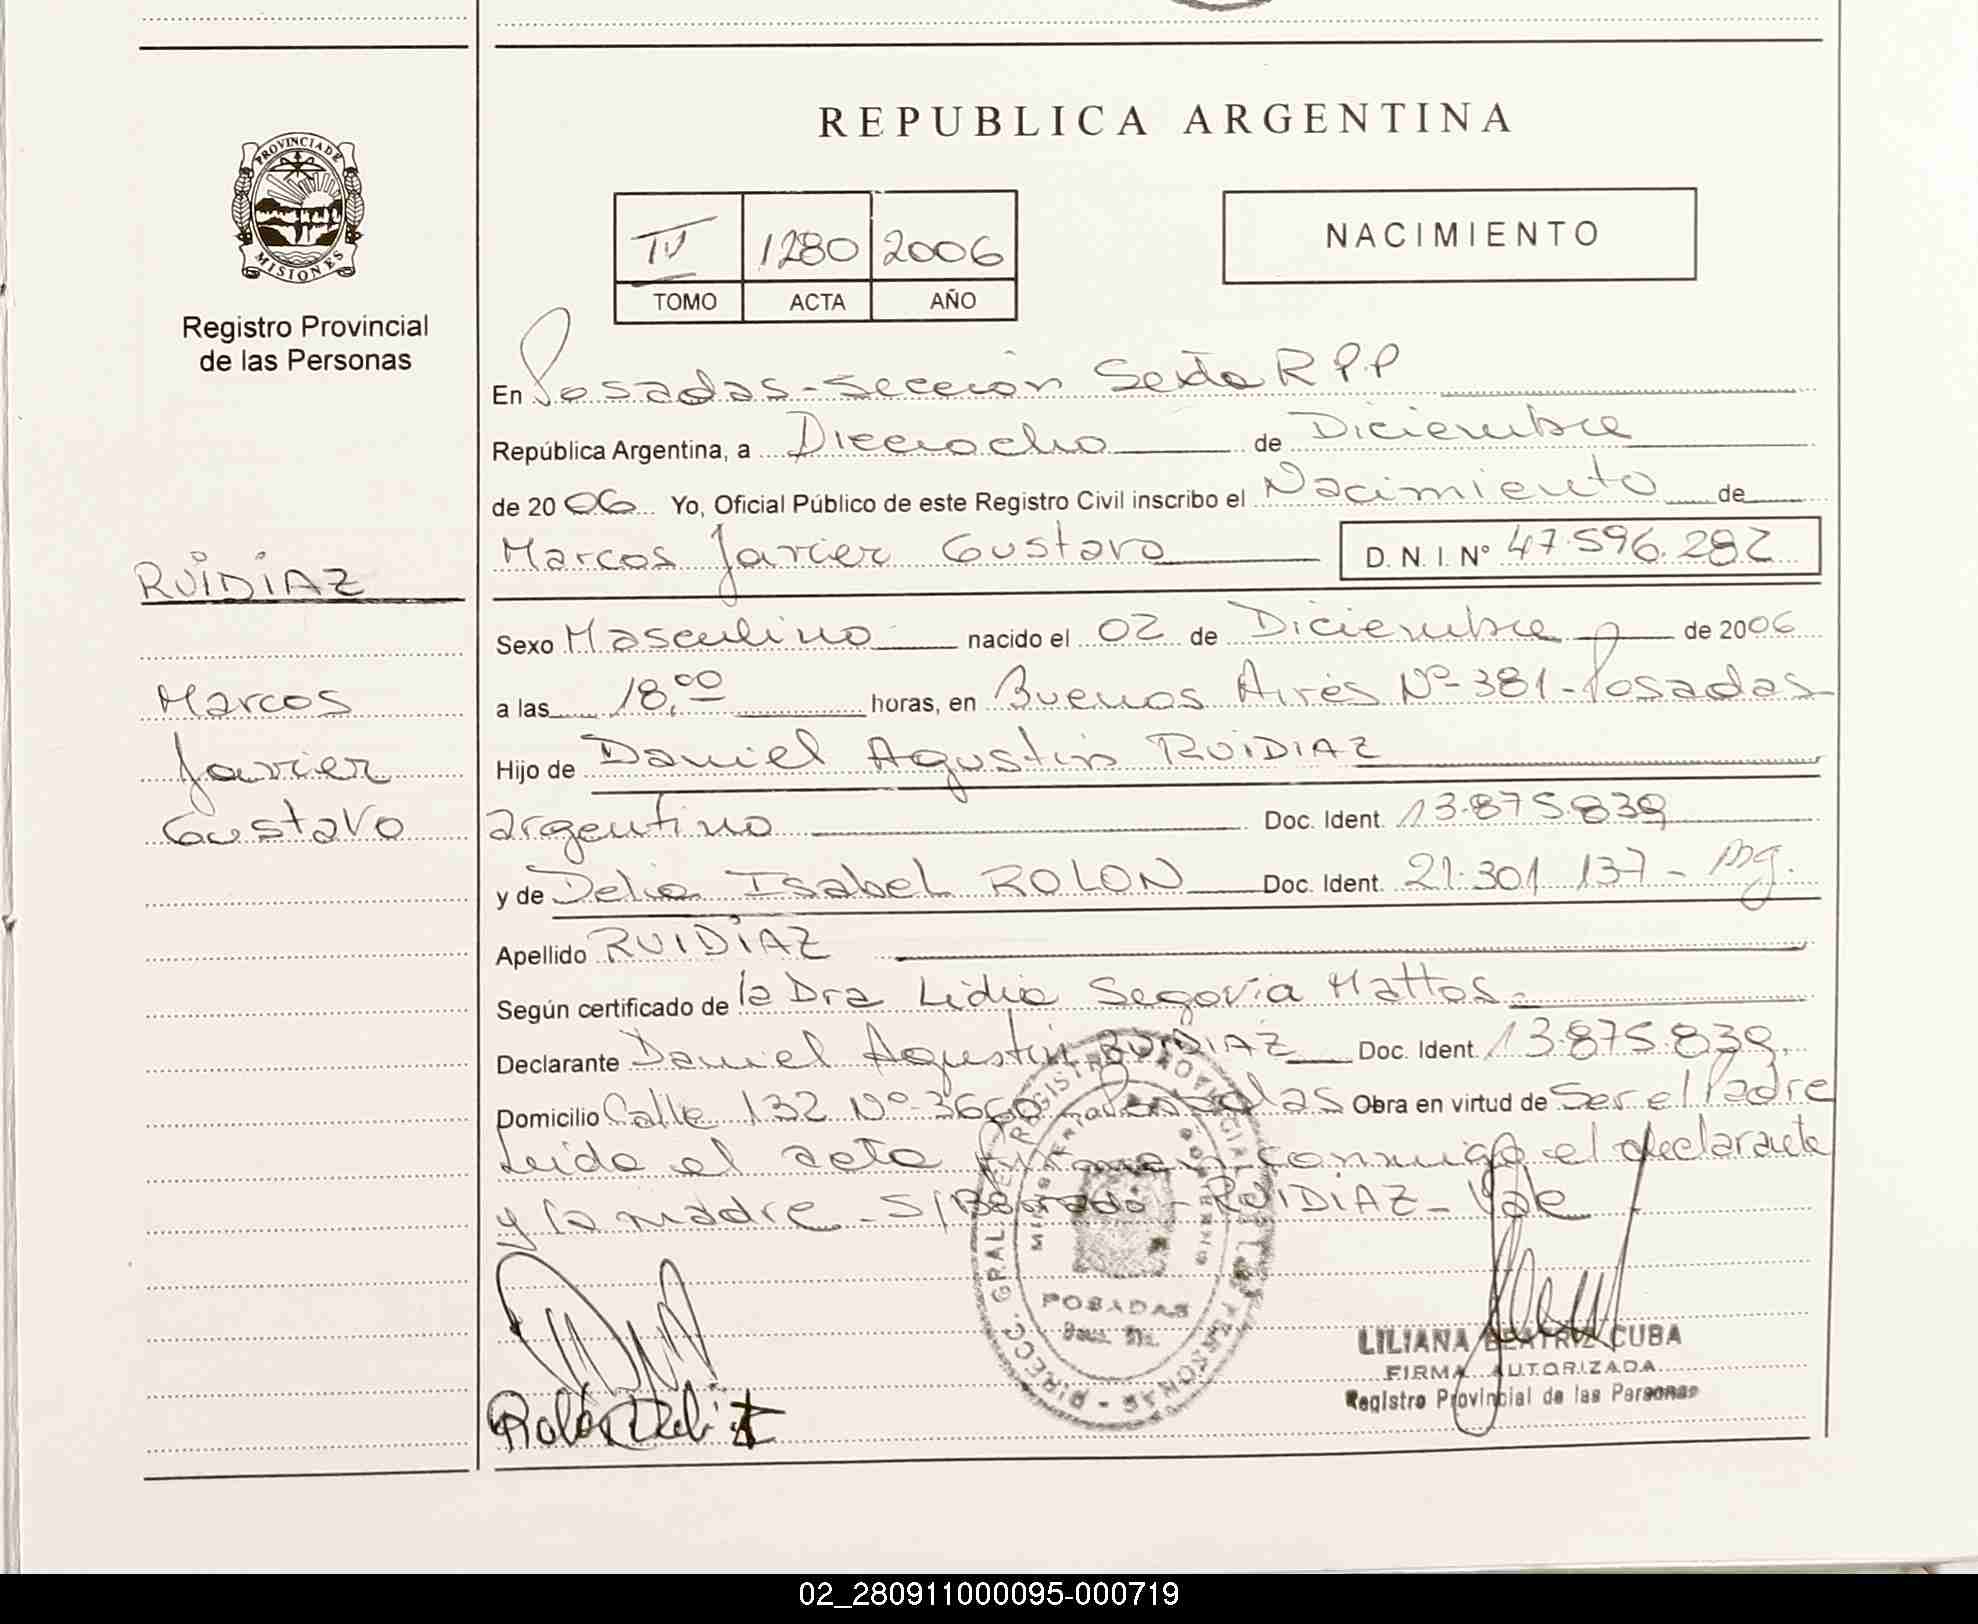 REPUBLICA ARGENTINA
PROVINCIA DE MISIONES
Registro Provincial
de las Personas
IV 1280 2006
TOMO ACTA AÑO
NACIMIENTO
En Posadas-Sección Sexta R P.P
República Argentina, a Dieciocho de Diciembre
de 2006 Yo, Oficial Público de este Registro Civil inscribo el Nacimiento de
Marcos Javier Gustavo D. N. I. Nº 47.596.282
RUIDIAZ
Marcos
Javier
Gustavo
Sexo Masculino nacido el 02 de Diciembre de 2006
a las 18,00 horas, en Buenos Aires Nº-381-Posadas
Hijo de Daniel Agustin RUIDIAZ
argentino Doc. Ident. 13.875.839
y de Delia Isabel ROLON Doc. Ident. 21.301.137- Arg.
Apellido RUIDIAZ
Según certificado de la Dra Lidia Segovia Mattos-
Declarante Daniel Agustin RUIDIAZ Doc. Ident. 13.875.839.
Domicilio Calle 132 Nº-3660-Posadas Obra en virtud de Ser el Padre
Leida el acta firman conmigo el declarante
y la madre-S/Borrado-RUIDIAZ-Vale
DIRECC. GRAL. DE REGISTRO PROVINCIAL DE LAS PERSONAS
MINISTERIO GOBIERNO
POSADAS
Rolón Deli
LILIANA BEATRIZ CUBA
FIRMA AUTORIZADA
Registro Provincial de las Personas
02_280911000095-000719